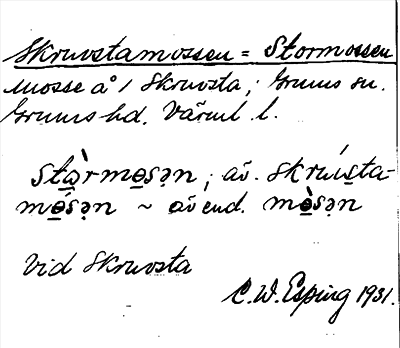 Skruvstamossen = Stormossen
Mosse å 1 Skruvsta; Grums sn.
Grums hd. Värml l.
stὰ̠rmo̠sə̣n; äv. skrú́s̠ta-
mo̠̍sə̣n ~ även d. mò̠sə̣n
Vid Skruvsta
C. W. Esping 1931.